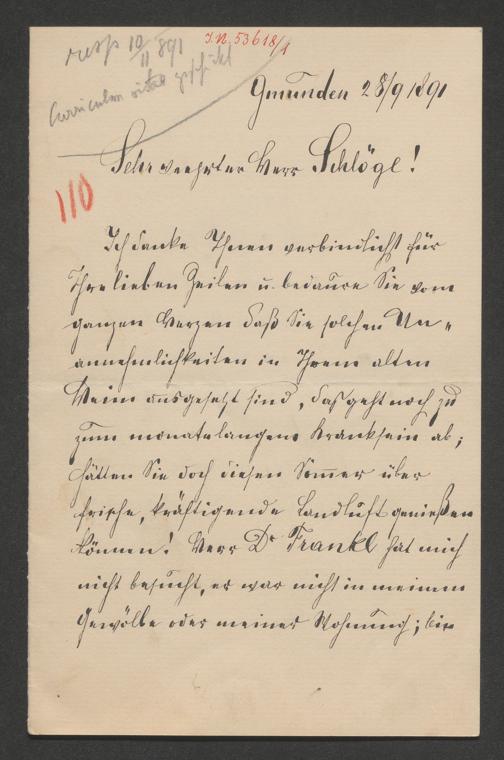 resp 10/11 891
J.N. 53618/1
Curriculum vitae geschickt
Gmunden 28/9 1891
Sehr verehrter Herr Schlögl!
110
Ich danke Ihnen verbindlichst für
Ihre lieben Zeilen u. bedaure Sie vom
ganzen Herzen daß Sie solchen Un-
annehmlichkeiten in Ihrem alten
Heim ausgesetzt sind, das geht noch zu
zum monatelangem Kranksein ab;
hätten Sie doch diesen Som̅er über
frische, kräftigende Landluft genießen
können! Herr Dr Frankl hat mich
nicht besucht, er war nicht in meinem
Gewölbe oder meiner Wohnung; bin